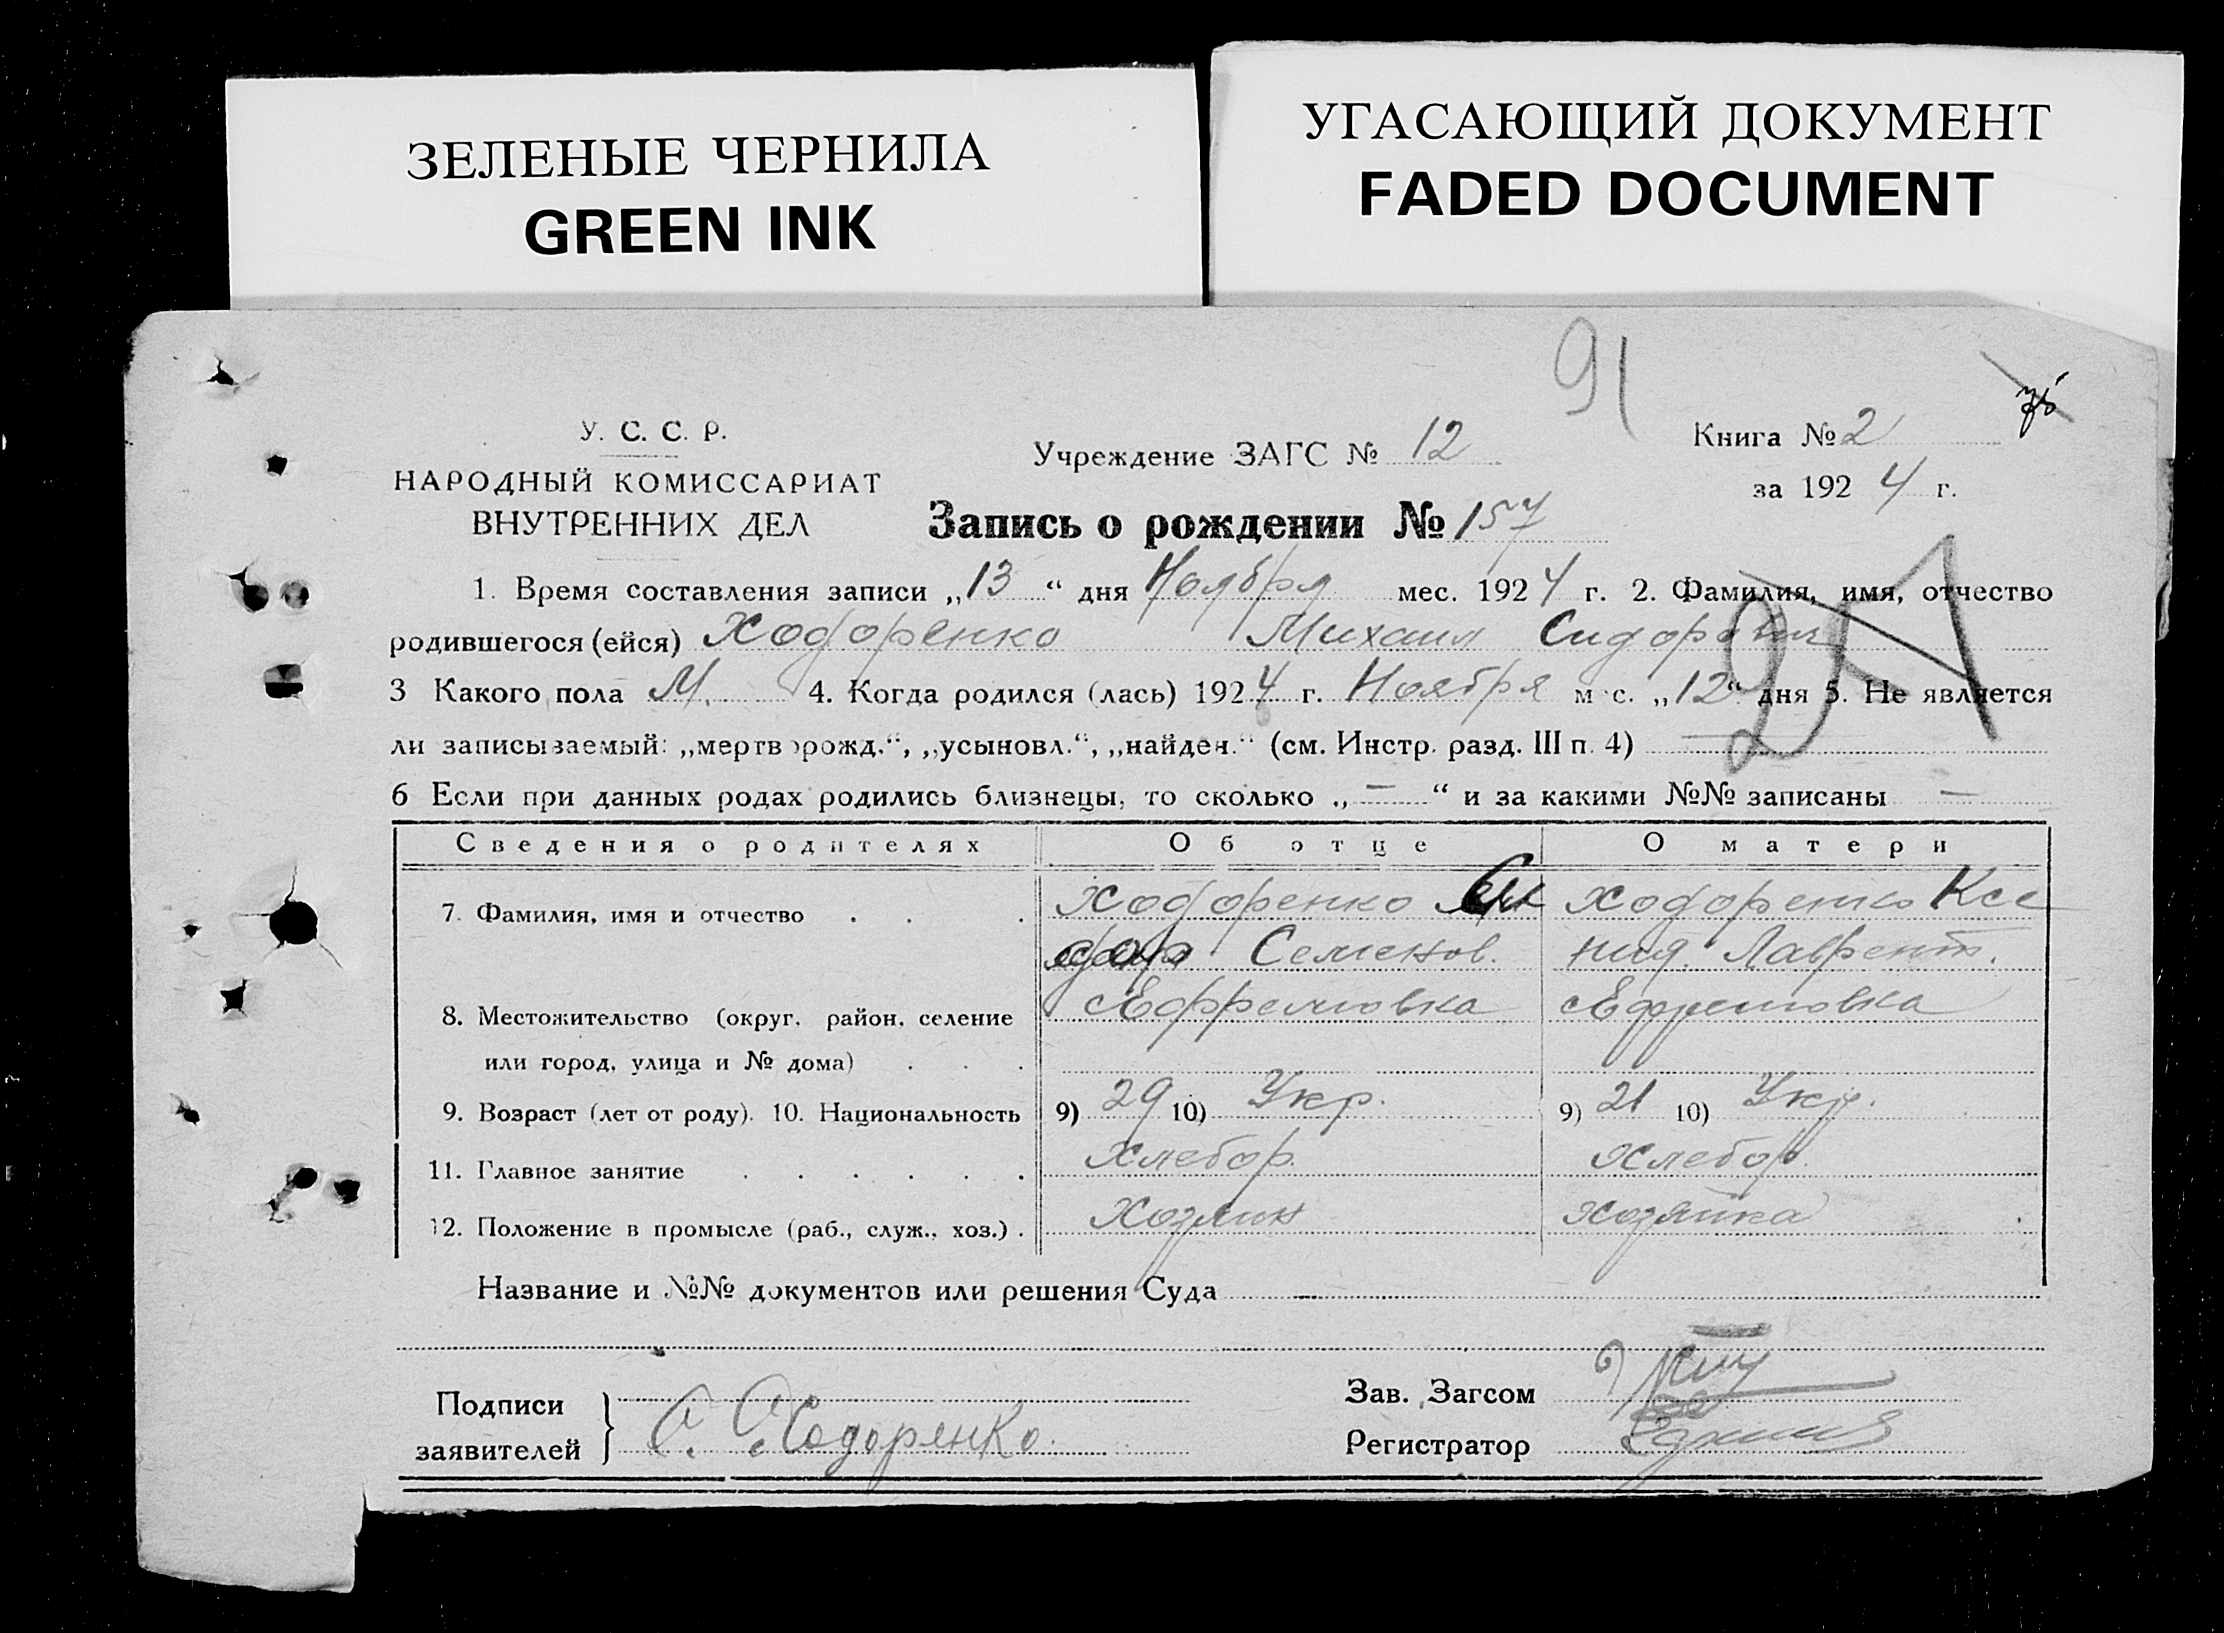 ЗЕЛЕНЫЕ ЧЕРНИЛА
GREEN INK
УГАСАЮЩИЙ ДОКУМЕНТ
FADED DOCUMENT
91
У. С. С. Р.
НАРОДНЫЙ КОМИССАРИАТ
ВНУТРЕННИХ ДЕЛ
Учреждение ЗАГС № 12
Книга № 2
за 1924 г.
Запись о рождении № 157
1. Время составления записи „13“ дня Ноября мес. 1924 г. 2. Фамилия, имя, отчество
родившегося (ейся) Ходоренко Михаил Сидорович
3 Какого пола М. 4. Когда родился (лась) 1924 г. Ноября мес. „12“ дня 5. Не является
ли записываемый: „мертворожд.“, „усыновл.“, „найден.“ (см. Инстр. разд. III п. 4) —
6 Если при данных родах родились близнецы, то сколько „—“ и за какими №№ записаны —
Сведения о родителях Об отце О матери
7. Фамилия, имя и отчество . . . Ходоренко Си Ходоренко Ксе
Семенов. ния. Лаврент.
8. Местожительство (округ, район, селение с Ефремовка с Ефремовка
или город, улица и № дома) . . .
9. Возраст (лет от роду). 10. Национальность 9) 29 10) Укр. 9) 21 10) Укр.
11. Главное занятие . . . . . . Хлебор. Хлебор.
12. Положение в промысле (раб., служ., хоз.) . Хозяин Хозяйка
Название и №№ документов или решения Суда —
Подписи
заявителей } С. Ходоренко.
Зав. Загсом
Регистратор